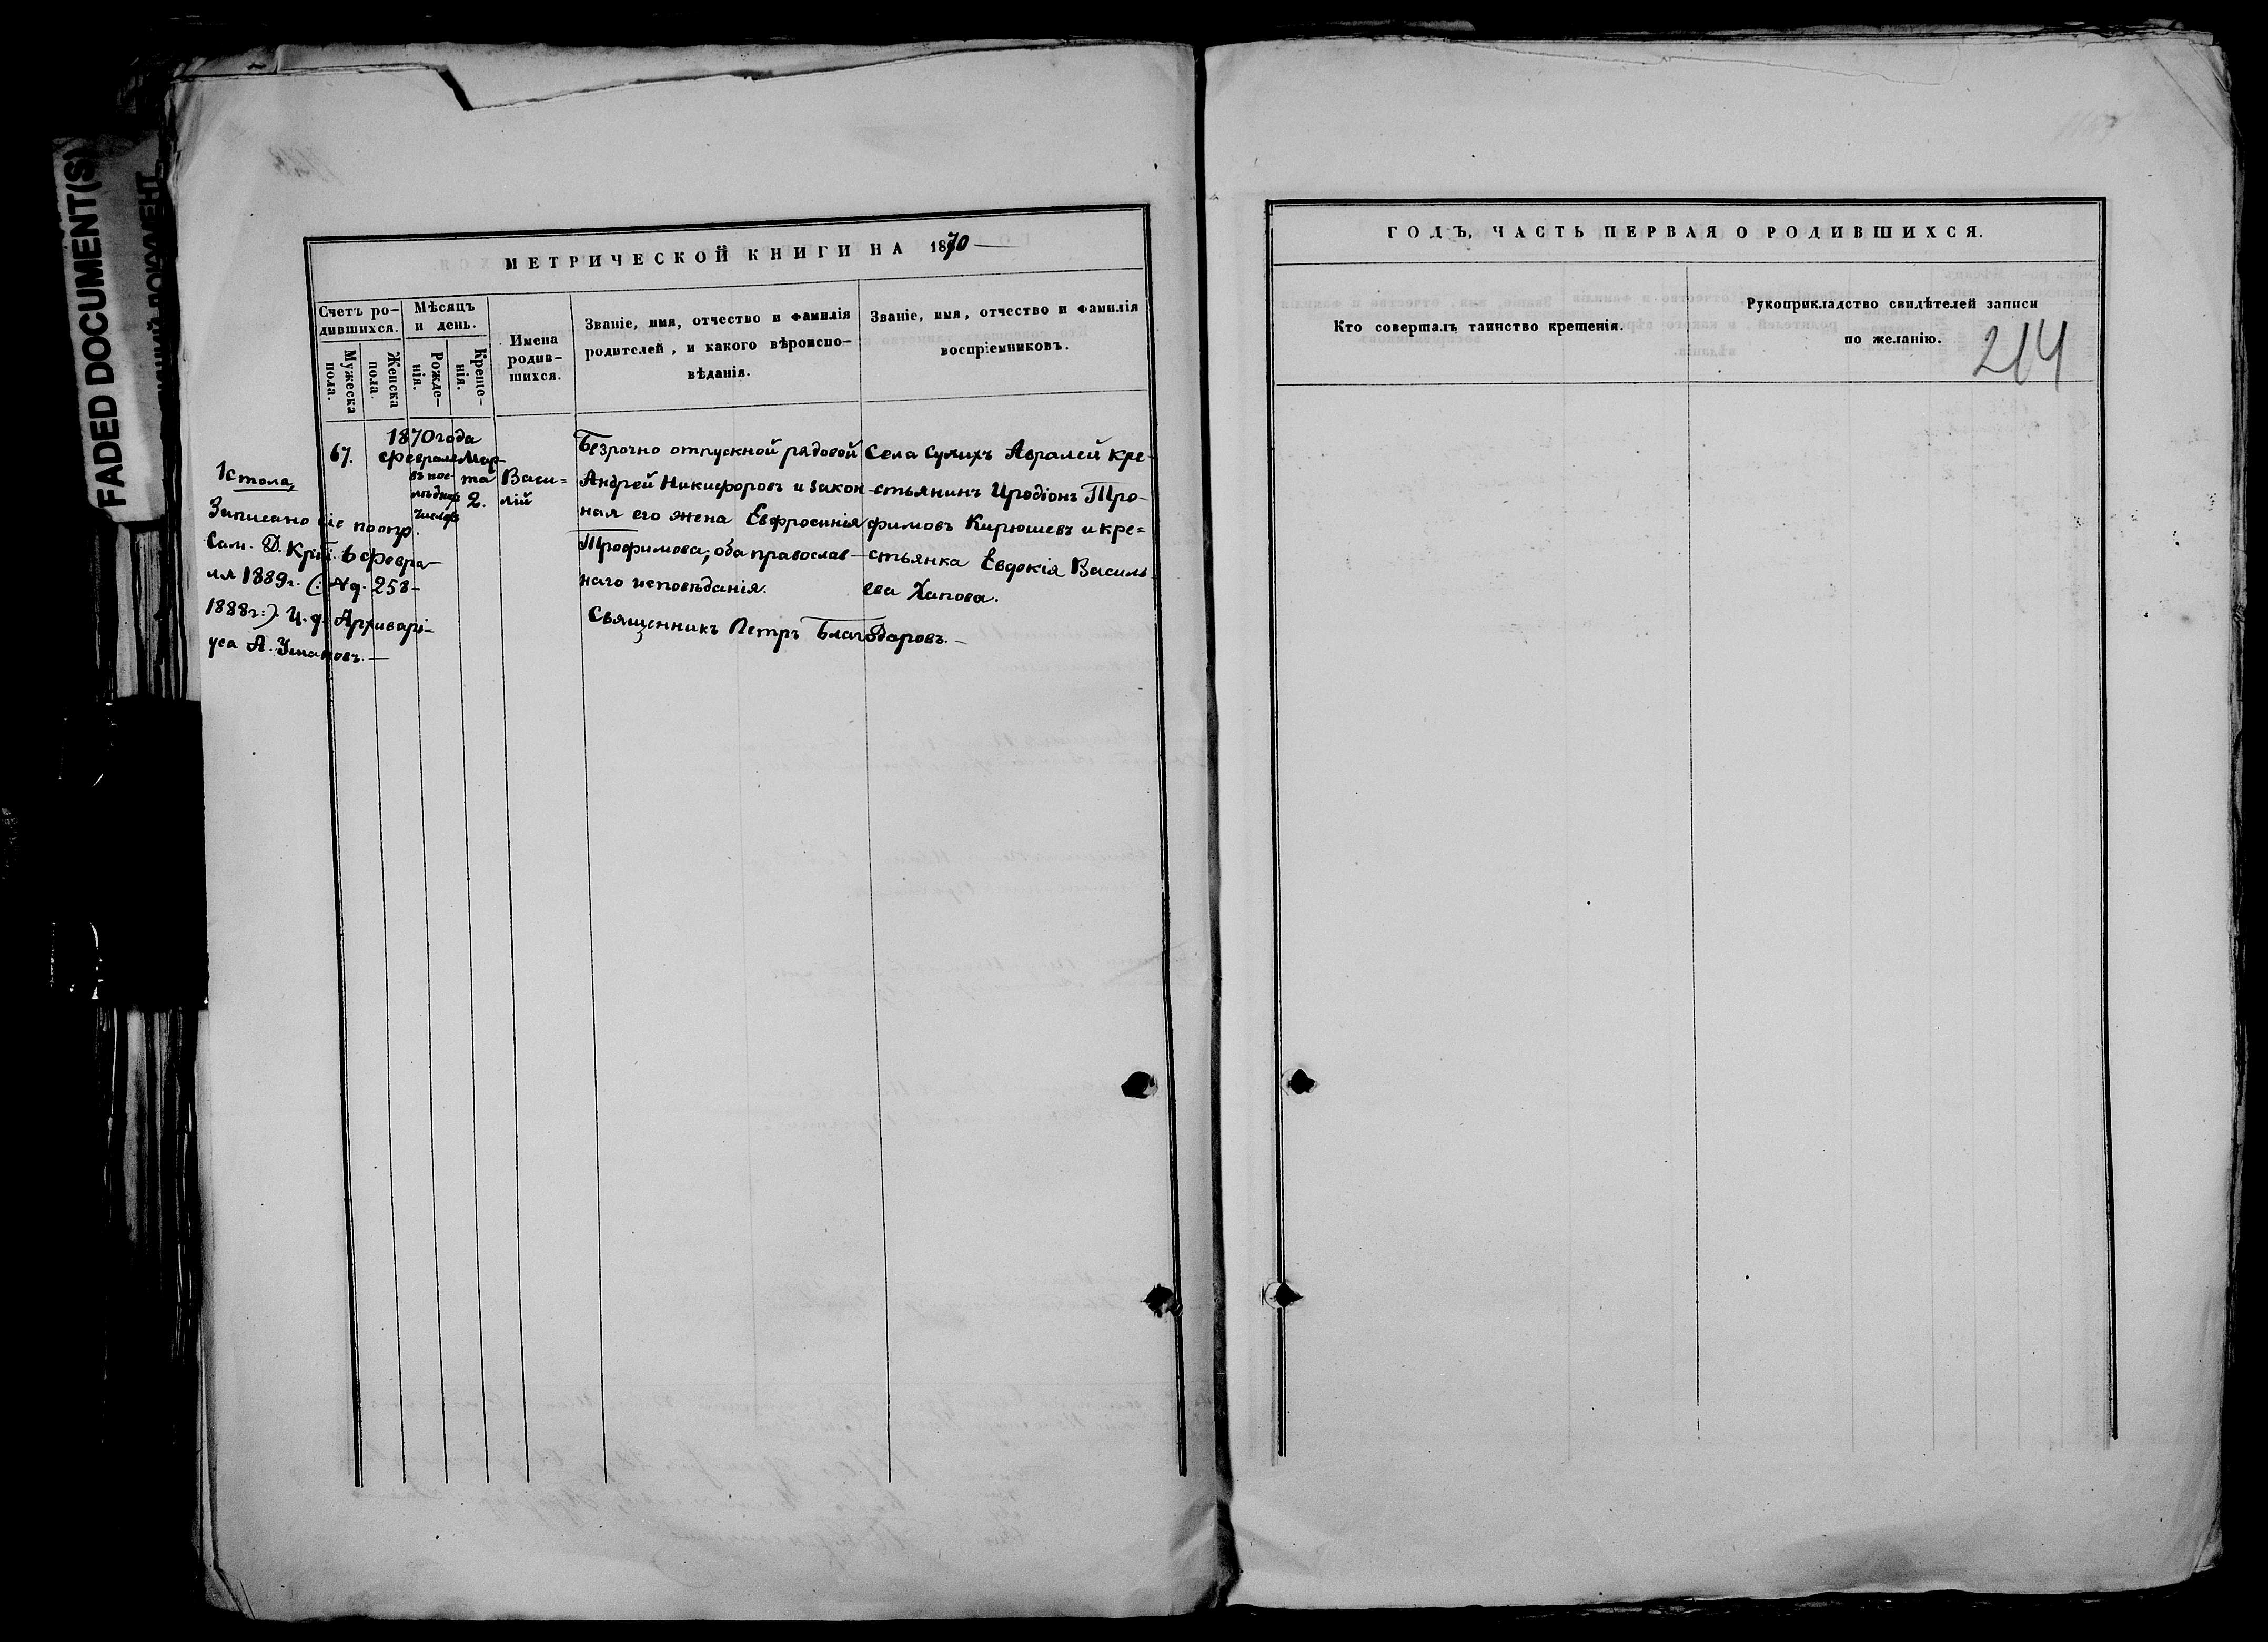 FADED DOCUMENT(S)
МЕТРИЧЕСКОЙ КНИГИ НА 1870
Счетъ ро-
дившихся.
Мужеска
пола.
Женска
пола.
Мѣсяцъ
и день.
Рожде-
нія.
Креще-
нія.
Имена
родив-
шихся.
Званіе, имя, отчество и фамилія
родителей, и какого вѣроиспо-
вѣданія.
Званіе, имя, отчество и фамилія
воспріемниковъ.
67.
1870 года
Февраля
въ пос-
лѣднихъ
числахъ
Мар-
та
2.
Васи=
лій
Безрочно отпускной рядовой
Андрей Никифоровъ и закон-
ная его жена Евфросинія
Трофимова; оба православ-
наго исповѣданія.
Села Сумихъ Авралей кре-
стьянинъ Иродіонъ Тро-
фимовъ Кирюшевъ и кре=
стьянка Евдокія Василь-
ева Хапова.
Священникъ Петръ Благодаровъ.—
1 стола,
Записано сіе по опр.
Сам. Д. 6 Февра-
ля 1889 г. (: 258-
1888 г:). И. д. Архиварі-
уса А. Ушаковъ.—
ГОДЪ, ЧАСТЬ ПЕРВАЯ О РОДИВШИХСЯ.
Кто совершалъ таинство крещенія.
Рукоприкладство свидѣтелей записи
по желанію.
214